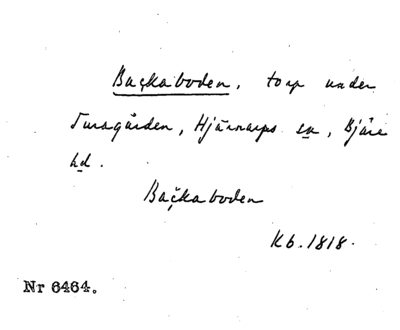 Bačkaboden, torp under
Turagården, Hjärnarps sn, Bjäre
hd.
Bačkaboden
Kb. 1818.
Nr 6464.